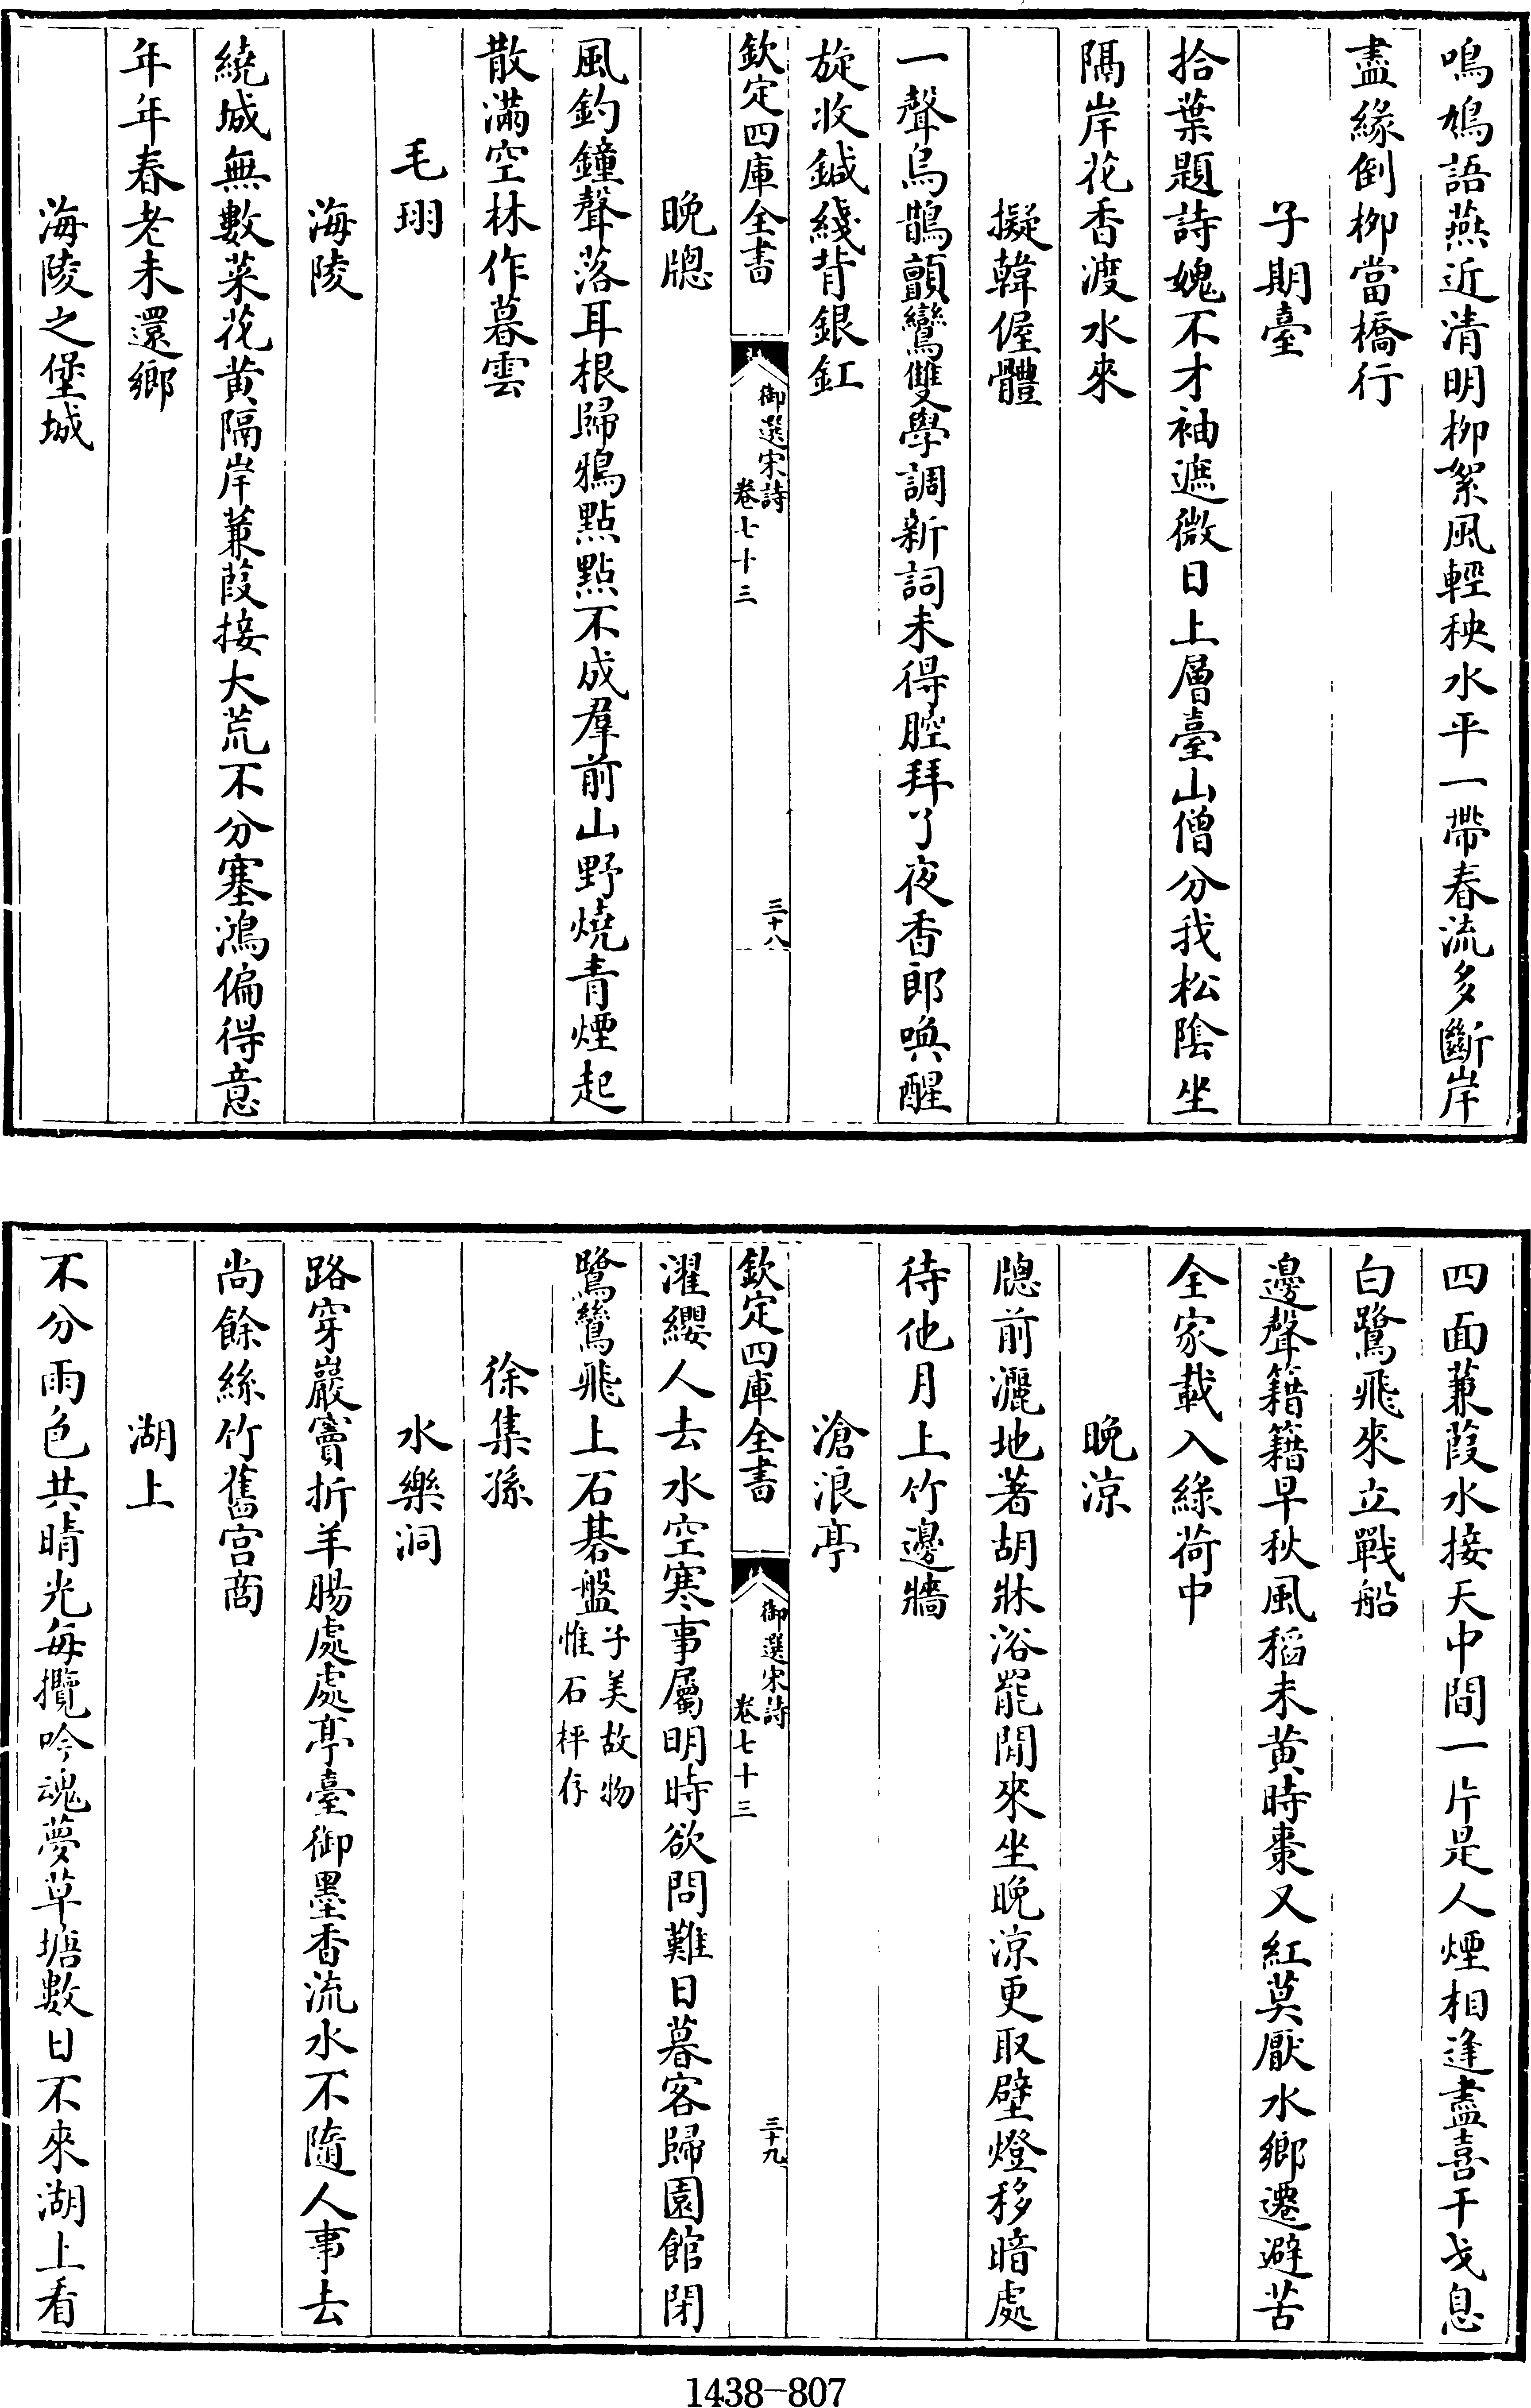 鳴鳩語燕近清明柳絮風輕秧水平一帶春流多斷岸
盡緣倒柳當橋行
子期臺
拾葉題詩媿不才袖遮微日上層臺山僧分我松陰坐
隔岸花香渡水來
擬韓偓體
一聲烏鵲顫鸞雙學調新詞未得腔拜了夜香郎喚醒
旋收鍼綫背銀釭
欽定四庫全書
御選宋詩
卷七十三
三十八
晚牕
風釣鐘聲落耳根歸鴉點點不成羣前山野燒青煙起
散滿空林作暮雲
毛珝
海陵
繞城無數菜花黃隔岸蒹葭接大荒不分塞鴻偏得意
年年春老未還鄉
海陵之堡城
四面蒹葭水接天中間一片是人煙相逢盡喜干戈息
白鷺飛來立戰船
邊聲籍籍早秋風稻未黃時棗又紅莫厭水鄉遷避苦
全家載入綠荷中
晚涼
牕前灑地著胡牀浴罷閒來坐晚涼更取壁燈移暗處
待他月上竹邊牆
滄浪亭
欽定四庫全書
御選宋詩
卷七十三
三十九
濯纓人去水空寒事屬明時欲問難日暮客歸園館閉
鷺鷥飛上石碁盤子美故物惟石枰存
徐集孫
水樂洞
路穿巖竇折羊腸處處亭臺御墨香流水不隨人事去
尚餘絲竹舊宮商
湖上
不分雨色共晴光每攬吟魂夢草塘數日不來湖上看
1438-807